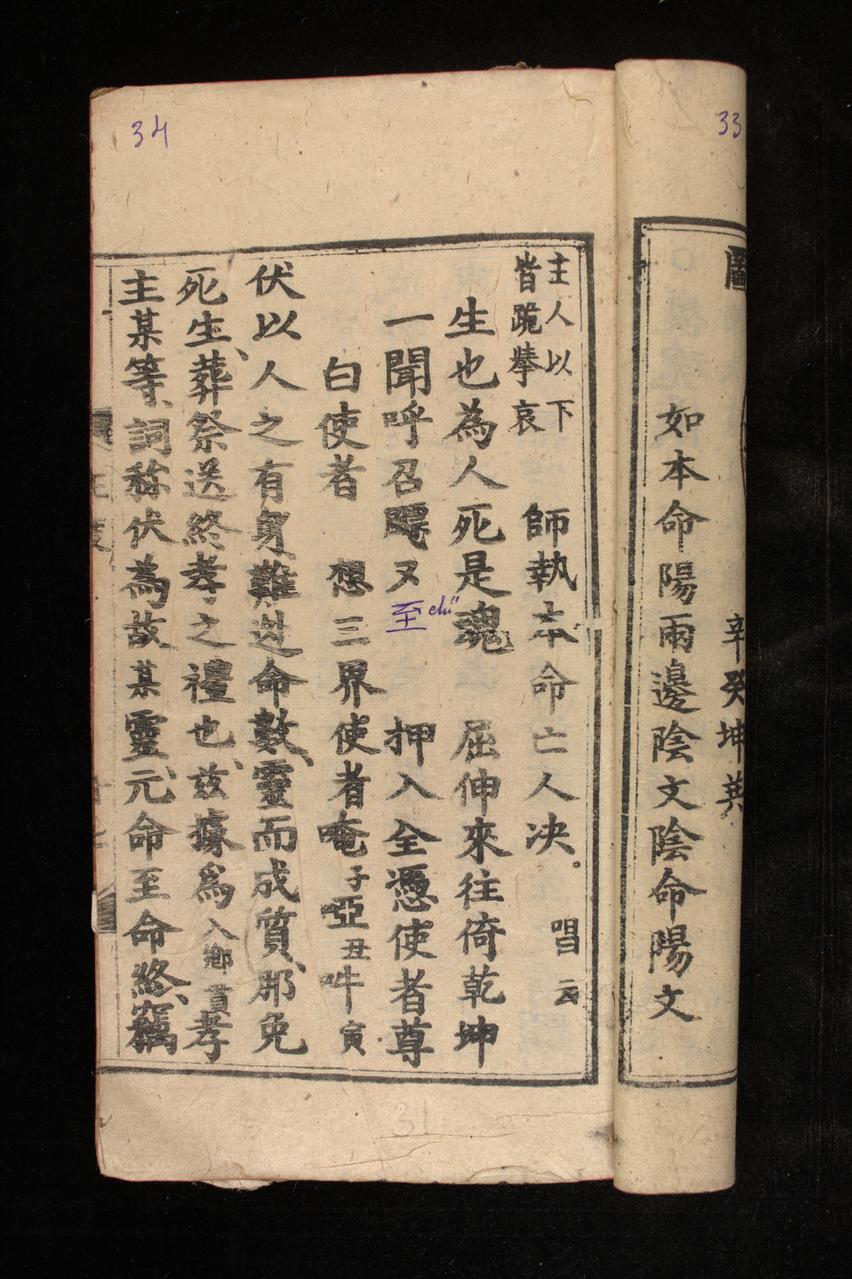 33
辛癸坤英
如本命陽雨邊陰文陰命陽文
34
主人以下
皆跪舉哀
師執本命亡人决。唱云
生也為人死是魂 屈伸來往倚乾坤
一聞呼召又至 chí 押入全憑使者尊
白使者 想三界使者唵子啞丑吽寅
伏以人之有身難逃命數、靈而成質、那免
死生、葬祭送終孝之禮也、茲據爲入鄉貫孝
主某等、詞称伏為故某靈、元命至命終、竊
31